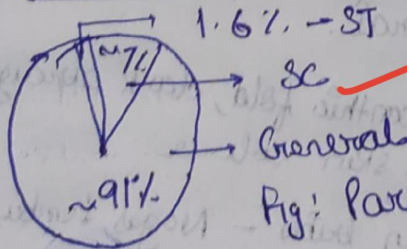 1.6% - ST
~7%
SC
General
~91%
Fig: Par